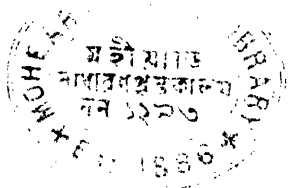 MOHE
BRARY
মহীয়াড়ি
সাধারণ পুস্তকালয়
সন ১২৯৩
1886